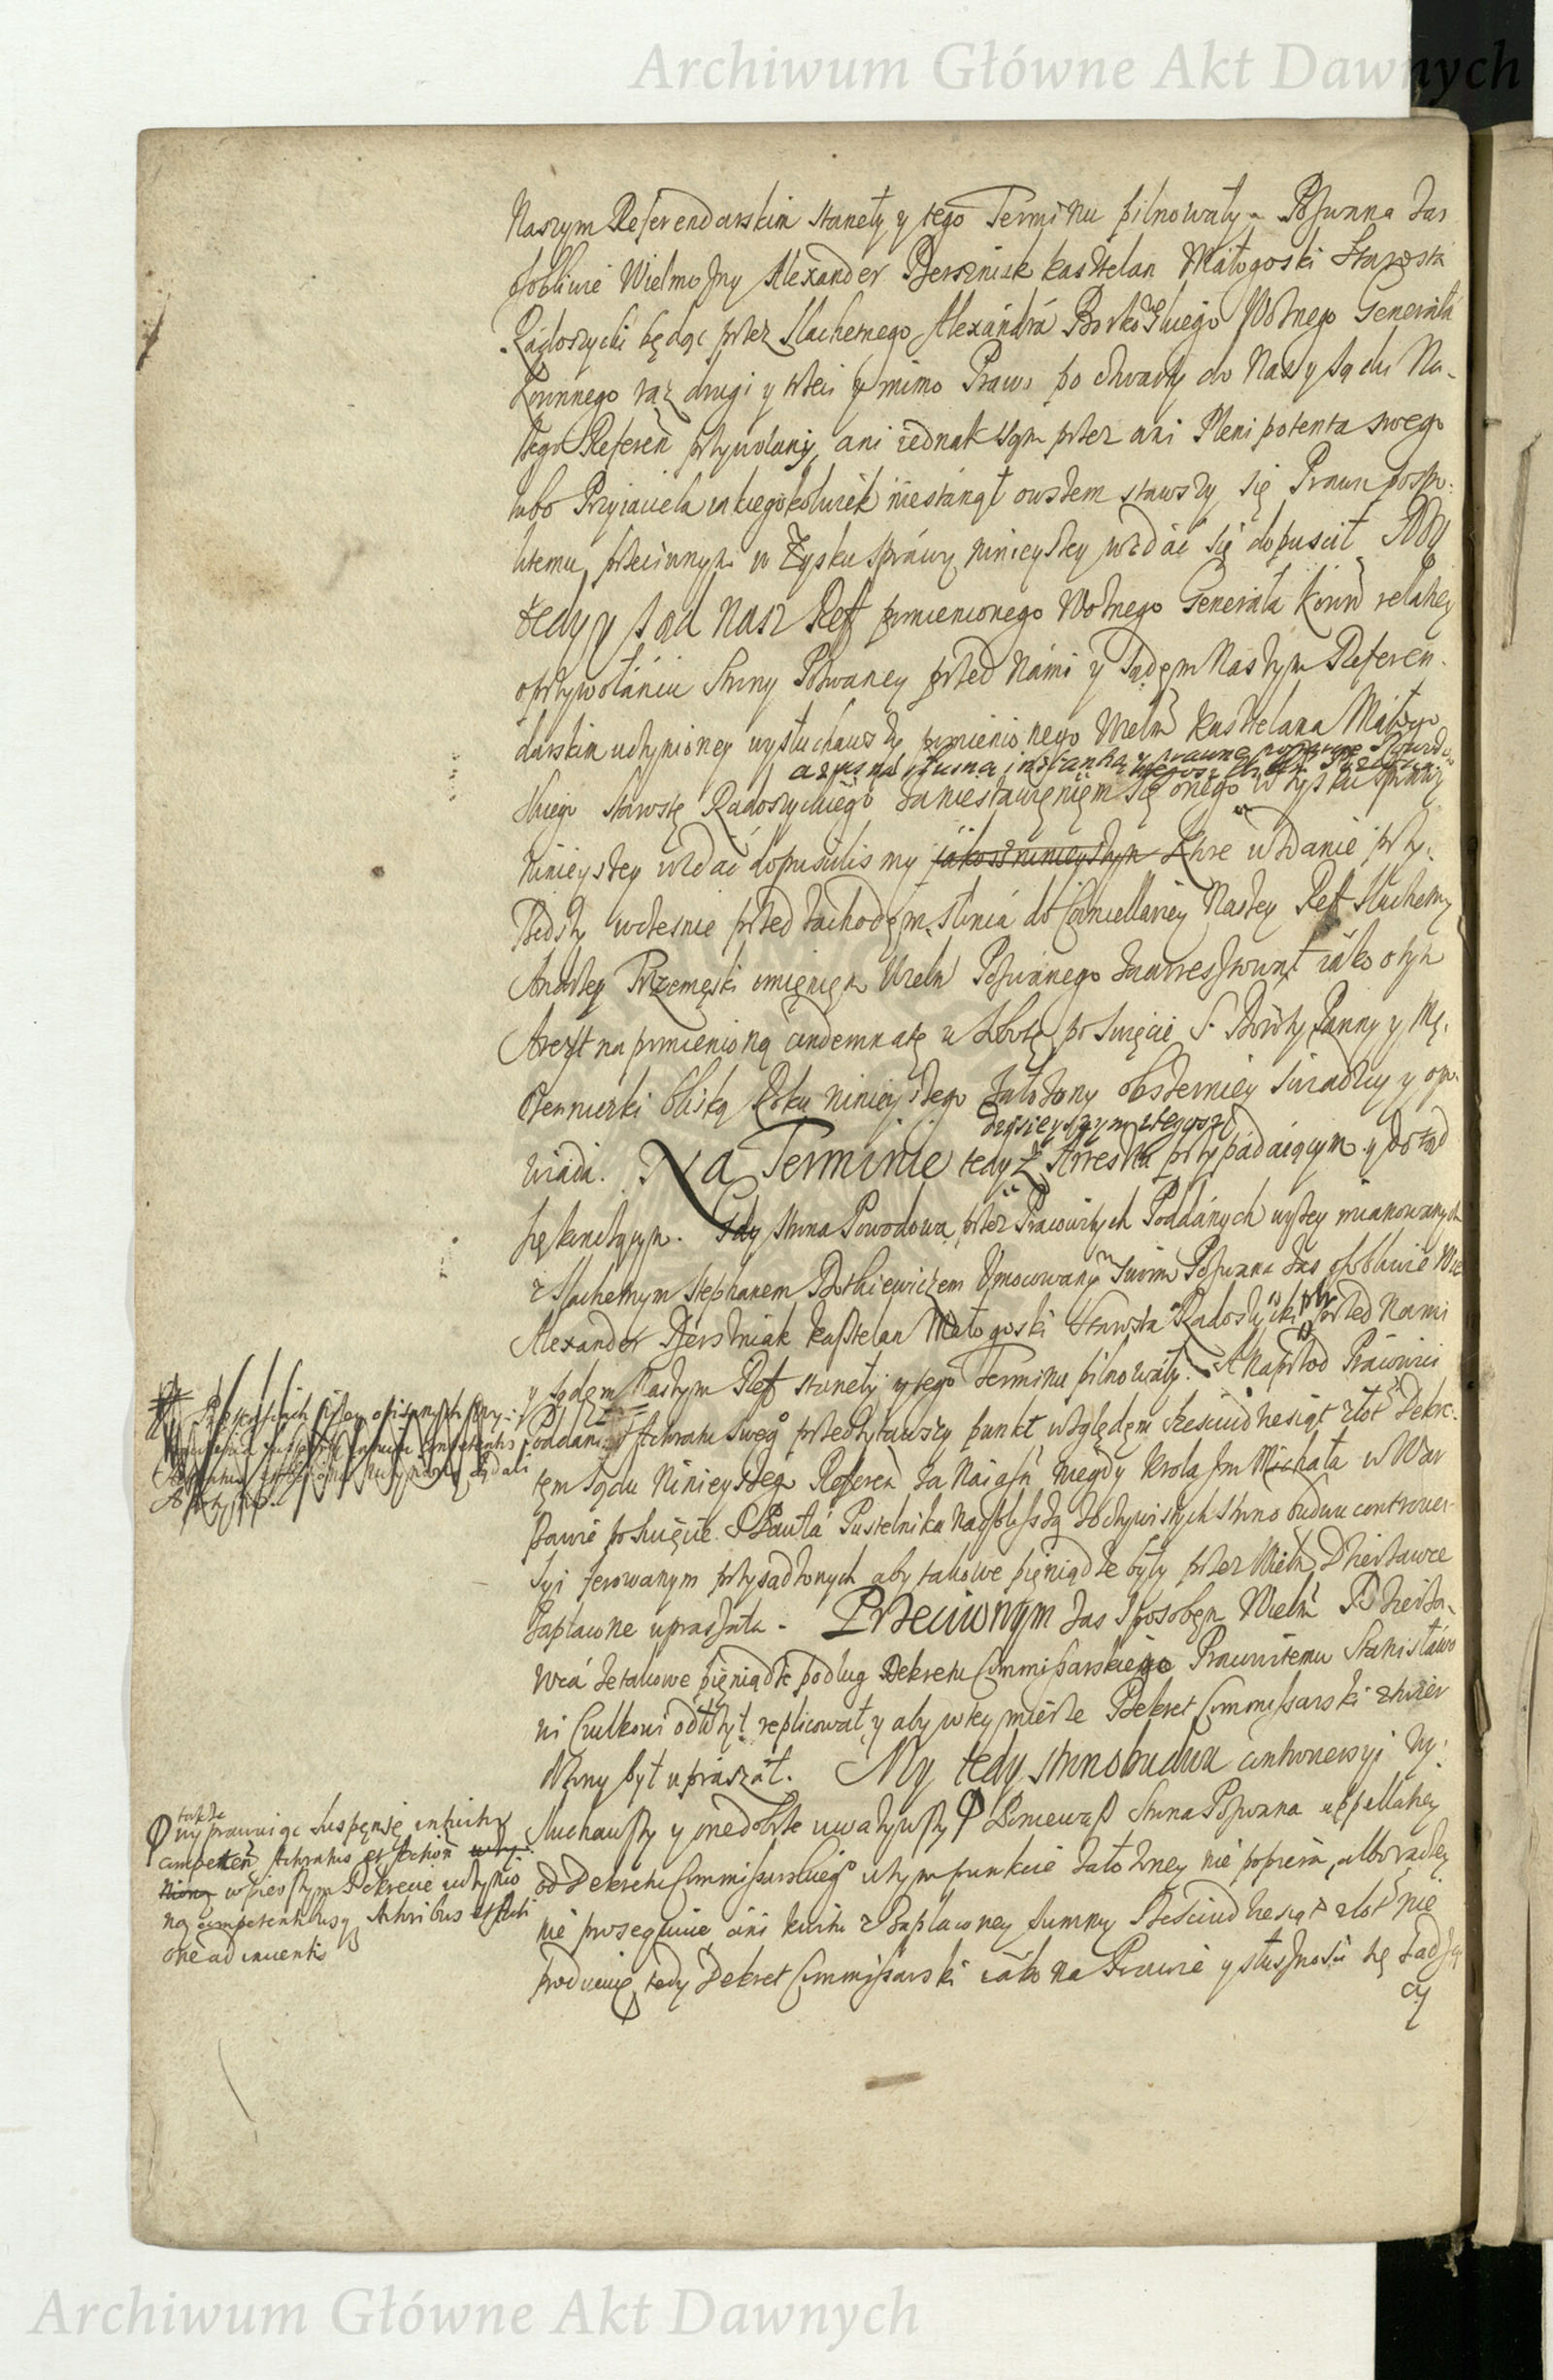 Archiwum Główne Akt Dawnych
Naszym Referendarskim stanęły y tego Terminu pilnowały. Pozwana zas
osobliwie Wielmożny Alexander Berszniak kasztelan Małogoski Starosta
Radoszycki będąc przez Slachetnego Alexandra Borkowskiego Woźnego Generała
Koronnego raz drugi y trzeci y mimo Prawo po czwarty do Nas y sądu Na-
szego Referen przywołany, ani iednak sam przez ani Plenipotenta swego
lubo Przyiaciela iakiegokolwiek niestanął owszem stawszy się Prawu pospo-
litemu przeciwnym w Zysku sprawy ninieyszey wzdać się dopuścił My
tedy y sąd Nasz Reff pomienionego Woźnego Generała Koron relatiey
o przywołaniu Strony Pozwaney przed Nami y Sądem Naszym Referen-
darskim uczynioney wysłuchawszy pomienionego Wielm kasztelana Małogo
a żyjąc
skiego starostę Radoszyckiego za niestawieniem się onego w zysku sprawy
ninieyszey wzdać dopuscilismy iakosz ninieyszym Ktore wzdanie przy-
szedszy wcześnie przed zachodem słońca do Cancellariey Naszey Reff Slachetny
Andrzey Przemęski imięniem Wielm Pozwanego zaarresztował iako o tym
Areszt na pomienioną condemnatę w Sobotę po święcie S. Doroty Panny y Mę-
czenniczki bliską Roku ninieyszego założony obszerniey świadczy y opo-
dzisieyszym
wiada. Na Terminie tedy z Arresztu przypadaiącym y dotąd
się kontynuiącym. Gdy Strona Powodowa przez Pracowitych Poddanych wyżey mianowanych
z Slachetnym Stephanem Umocowanym Swoim Pozwana zas osobliwie Wie
Alexander Bierszniak kasztelan Małogoski Starosta Radoszycki przed Nami
y Sądem Naszym Reff stanęły y tego Terminu pilnowały. A naprzod Pracowici
Poddani Actoratu swego przeczytawszy punkt względem sześciudziesiąt złot Dekre-
tem Sądu Ninieyszego Referen za Naiaśn niegdy krola Jm Michała w War
szawie po święcie S Pawła Pustelnika naybliższą z oczywistych strono budwu controver-
syi ferowanym przysądzonych aby takowe pieniądze były przez Wielm Dzierżawcę
zapłacone upraszała. Przeciwnym zas Sposobem Wielm Dzierża-
wca że takowe pieniądze podług Dekretu Commissarskiego Pracowitemu Stanisławo
wi Czułkowi odłożył replicował y aby w tey mierze Dekret Commissarski stwier
dzony był upraszał. My tedy stron obudwu controversyi wy-
słuchawszy y one dobrze uważywszy Ponieważ Strona Pozwana appellatiey
od Dekretu Commissarskiego w tym punkcie założoney nie popiera, albo raczey
nie prosequuie, ani kwitu z zapłaconey summy sześciudziesiąt złot nie
producuie, tedy Dekret Commissarski iako na Prawie y słuszności się sadzą
cy
także
uprawuiąc Suspensię intuitu
competen Actoratus et Action uczy-
nioną w pierwszym Dekrecie uczynio
ną competentibusq Actoribus et Acti
one ad inventis
Archiwum Główne Akt Dawnych